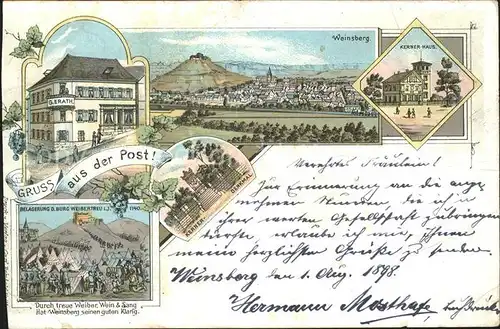 Weinsberg.
KERNER-HAUS.
G. ERATH.
GRUSS aus der Post!
KERNER-DENKMAL
BELAGERUNG D. BURG WEIBERTREU I. J. 1140.
Durch treue Weiber, Wein & Sang
Hat Weinsberg seinen guten Klang.
Verehrtes Fräulein!
Zur Erinnerung an die ange-
nehmen Stunden, die ich in
ihrer werten Gesellschaft zubringen
durfte, erlaube ich mir, Ihnen
meine herzlichsten Grüße zu senden.
Weinsberg den 1. Aug. 1898.
Hermann Mosthaf,